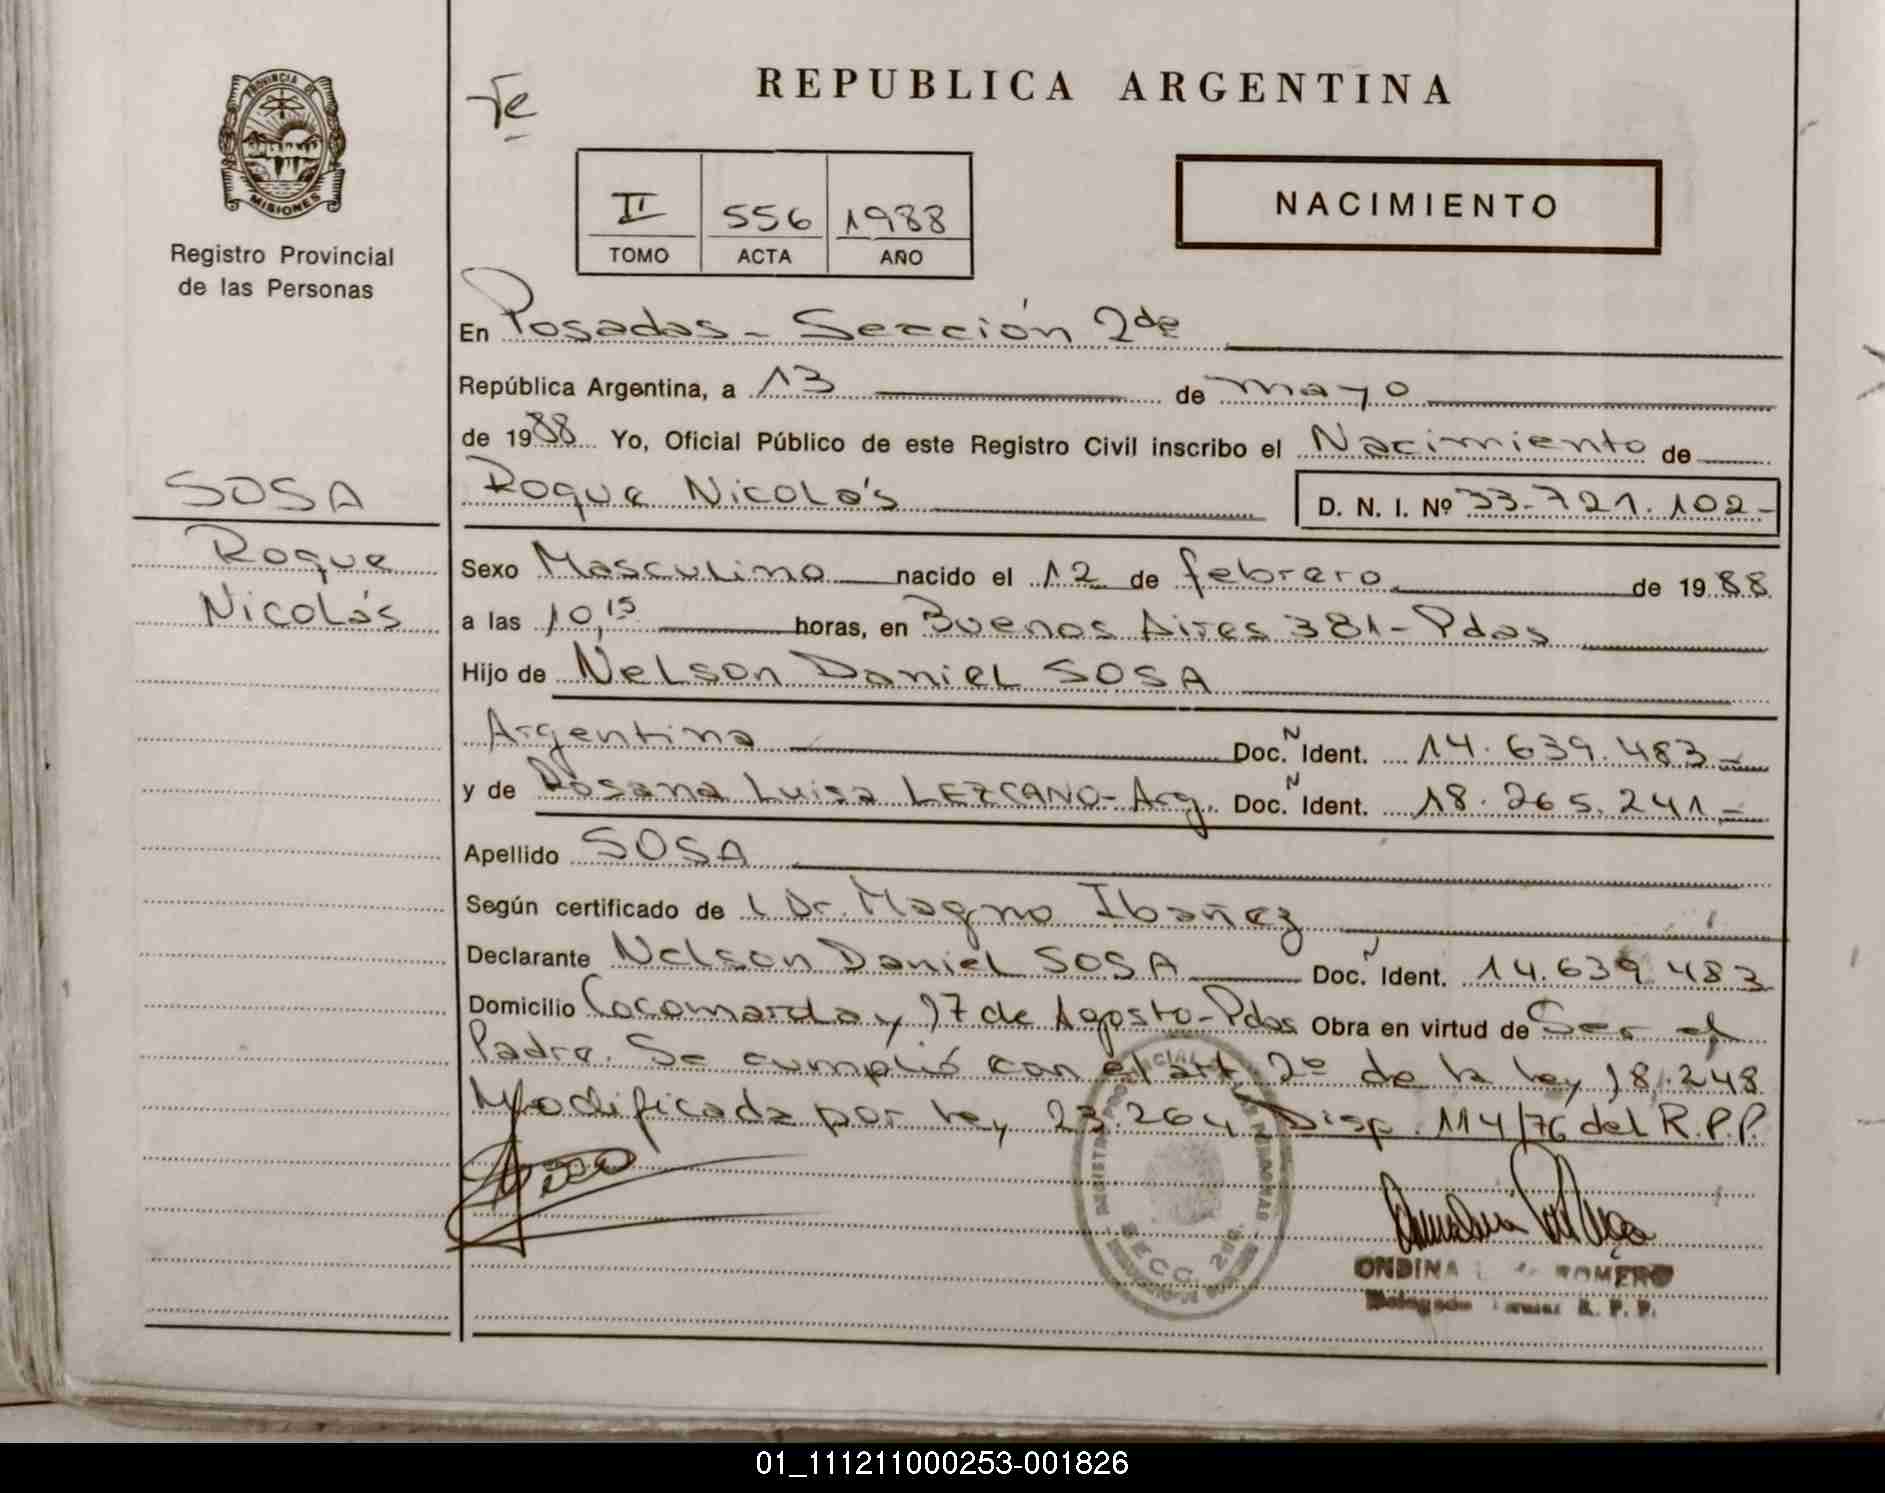 PROVINCIA DE
MISIONES
Registro Provincial
de las Personas
SOSA
Roque
Nicolás
Te
REPUBLICA ARGENTINA
II 556 1988
TOMO ACTA AÑO
NACIMIENTO
En Posadas - Sección 2da
República Argentina, a 13 de mayo
de 1988 Yo, Oficial Público de este Registro Civil inscribo el Nacimiento de
Roque Nicolás D. N. I. Nº 33.721.102-
Sexo Masculino nacido el 12 de febrero de 1988
a las 10,15 horas, en Buenos Aires 381 - Pdas
Hijo de Nelson Daniel SOSA
Argentino Doc. N Ident. 14.639.483-
y de Rosana Luisa LEZCANO - Arg. Doc. N Ident. 18.265.241-
Apellido SOSA
Según certificado de Dr. Magno Ibañez
Declarante Nelson Daniel SOSA Doc. N Ident. 14.639.483
Domicilio Cocomarola y 17 de Agosto - Pdas Obra en virtud de Ser el
Padre. Se cumplió con el art. 2º de la ley 18.248
Modificada por ley 23.264 Disp. 114/76 del R.P.P.
SECC. 2da.
ONDINA ROMERO
R. P. P.
01_111211000253-001826